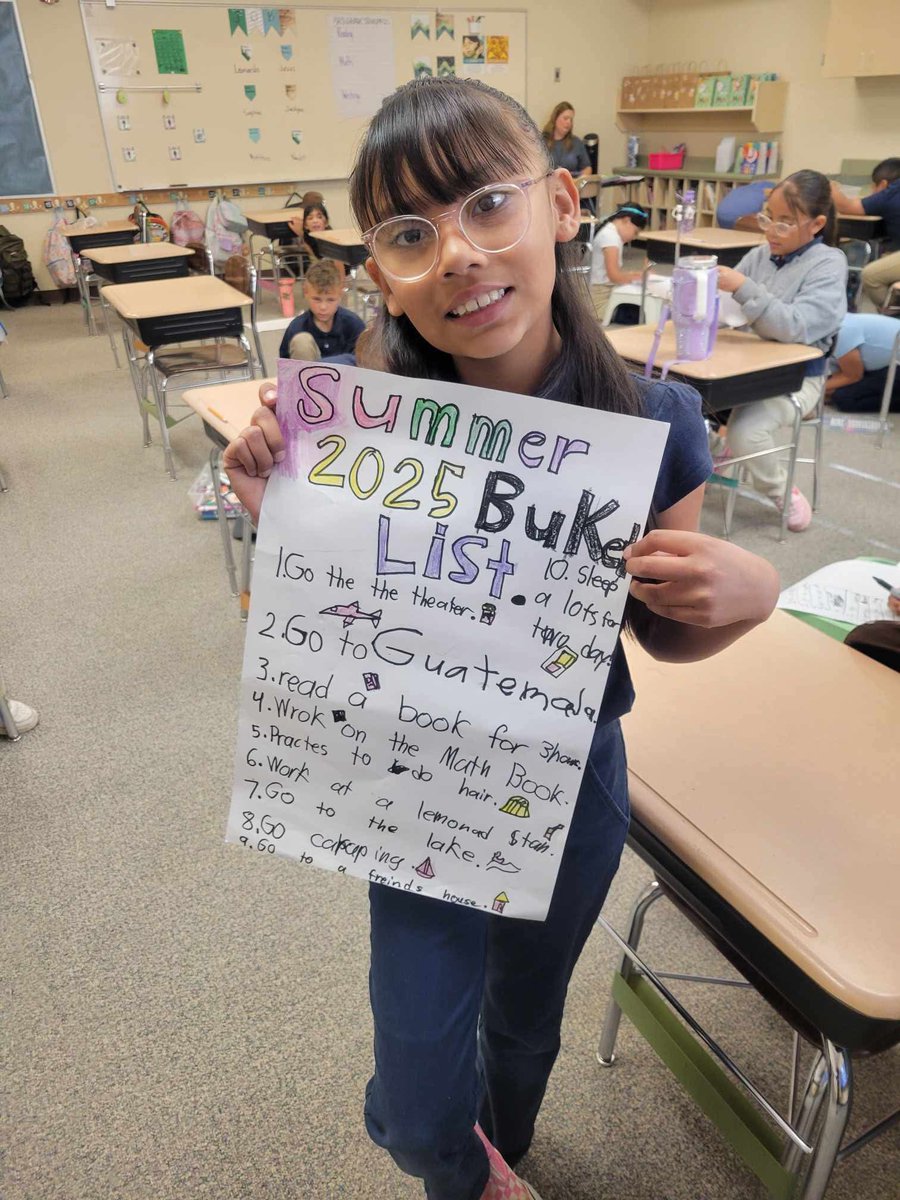 Summer
2025 BuKet
List.
1.Go the the theater.
2.Go to Guatemala.
3.read a book for 3hour.
4.Wrok on the Math Book.
5.Practes to do hair.
6.Work at a lemonad stan.
7.Go to the lake.
8.GO
9.GO to a freinds house.
10. Sleep
a lots for
two days!